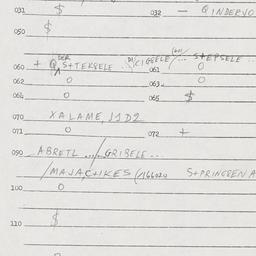 031 $ 032 — QINDERVO
050 $
DER
060 + Q S+TEKSELE .. CIGGELE/... S+EPSELE
061 O
062 O 063 O
064 O 065 $
070 XALAME, JJD2
071 O 072 +
090 ABRETL ..../GRIBELE ...
/MAJA, C+IKES (/166020 S+PRINGREN A
100 O
110 $